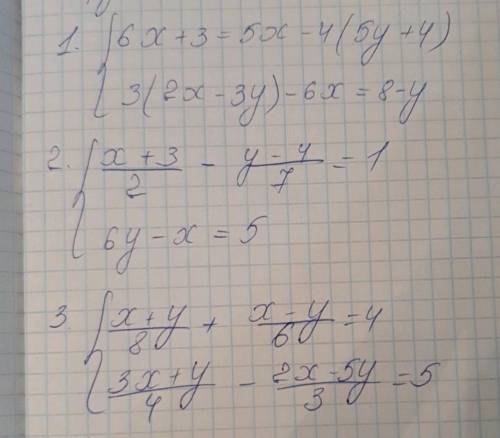 1. { 6x + 3 = 5x - 4(5y + 4)
3(2x - 3y) - 6x = 8 - y
2. { (x + 3)/2 - (y - 4)/7 = 1
6y - x = 5
3. { (x + y)/8 + (x - y)/6 = 4
(3x + y)/4 - (2x - 5y)/3 = 5